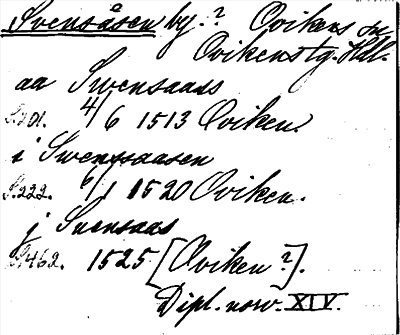 Svensåsen by.? Ovikens sn
Ovikens tg. Hll.
aa Swensaass
S.201. 4/6 1513 Oviken.
i Swenssaasen
S.222. 6/1 1520 Oviken.
j Suensaas
S.462. 1525 [Oviken?].
Dipl. norv. XIV.